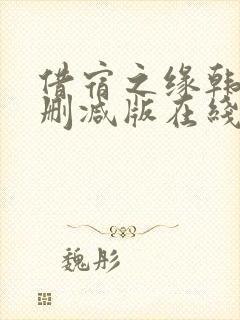 借宿之缘韩
删减版在线
魏彤